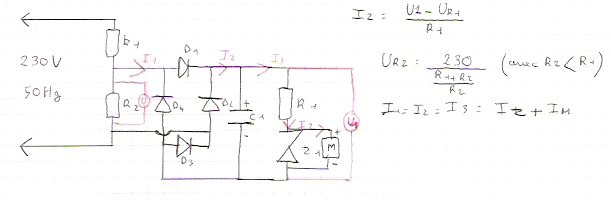 230V
50Hz
R1
I1
D1
I2
I3
R2
V
D4
D2
D3
+
C1
-
R1
IZ
Z1
+
M
-
V1
I2 = U1 - UR1 / R1
UR2 = 230 / R1+R2 / R2 (avec R2 < R1)
I1 = I2 = I3 = IZ + IM